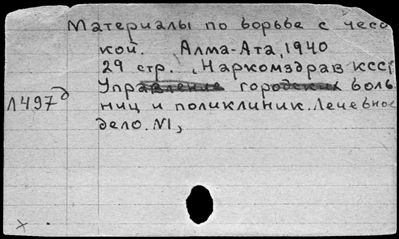 Материалы по борьбе с чесо
кой. Алма-Ата, 1940
29 стр., Наркомздрав КССР
Управление городских боль
ниц и поликлиник. Лечебное
Л497д
дело. №1,
х